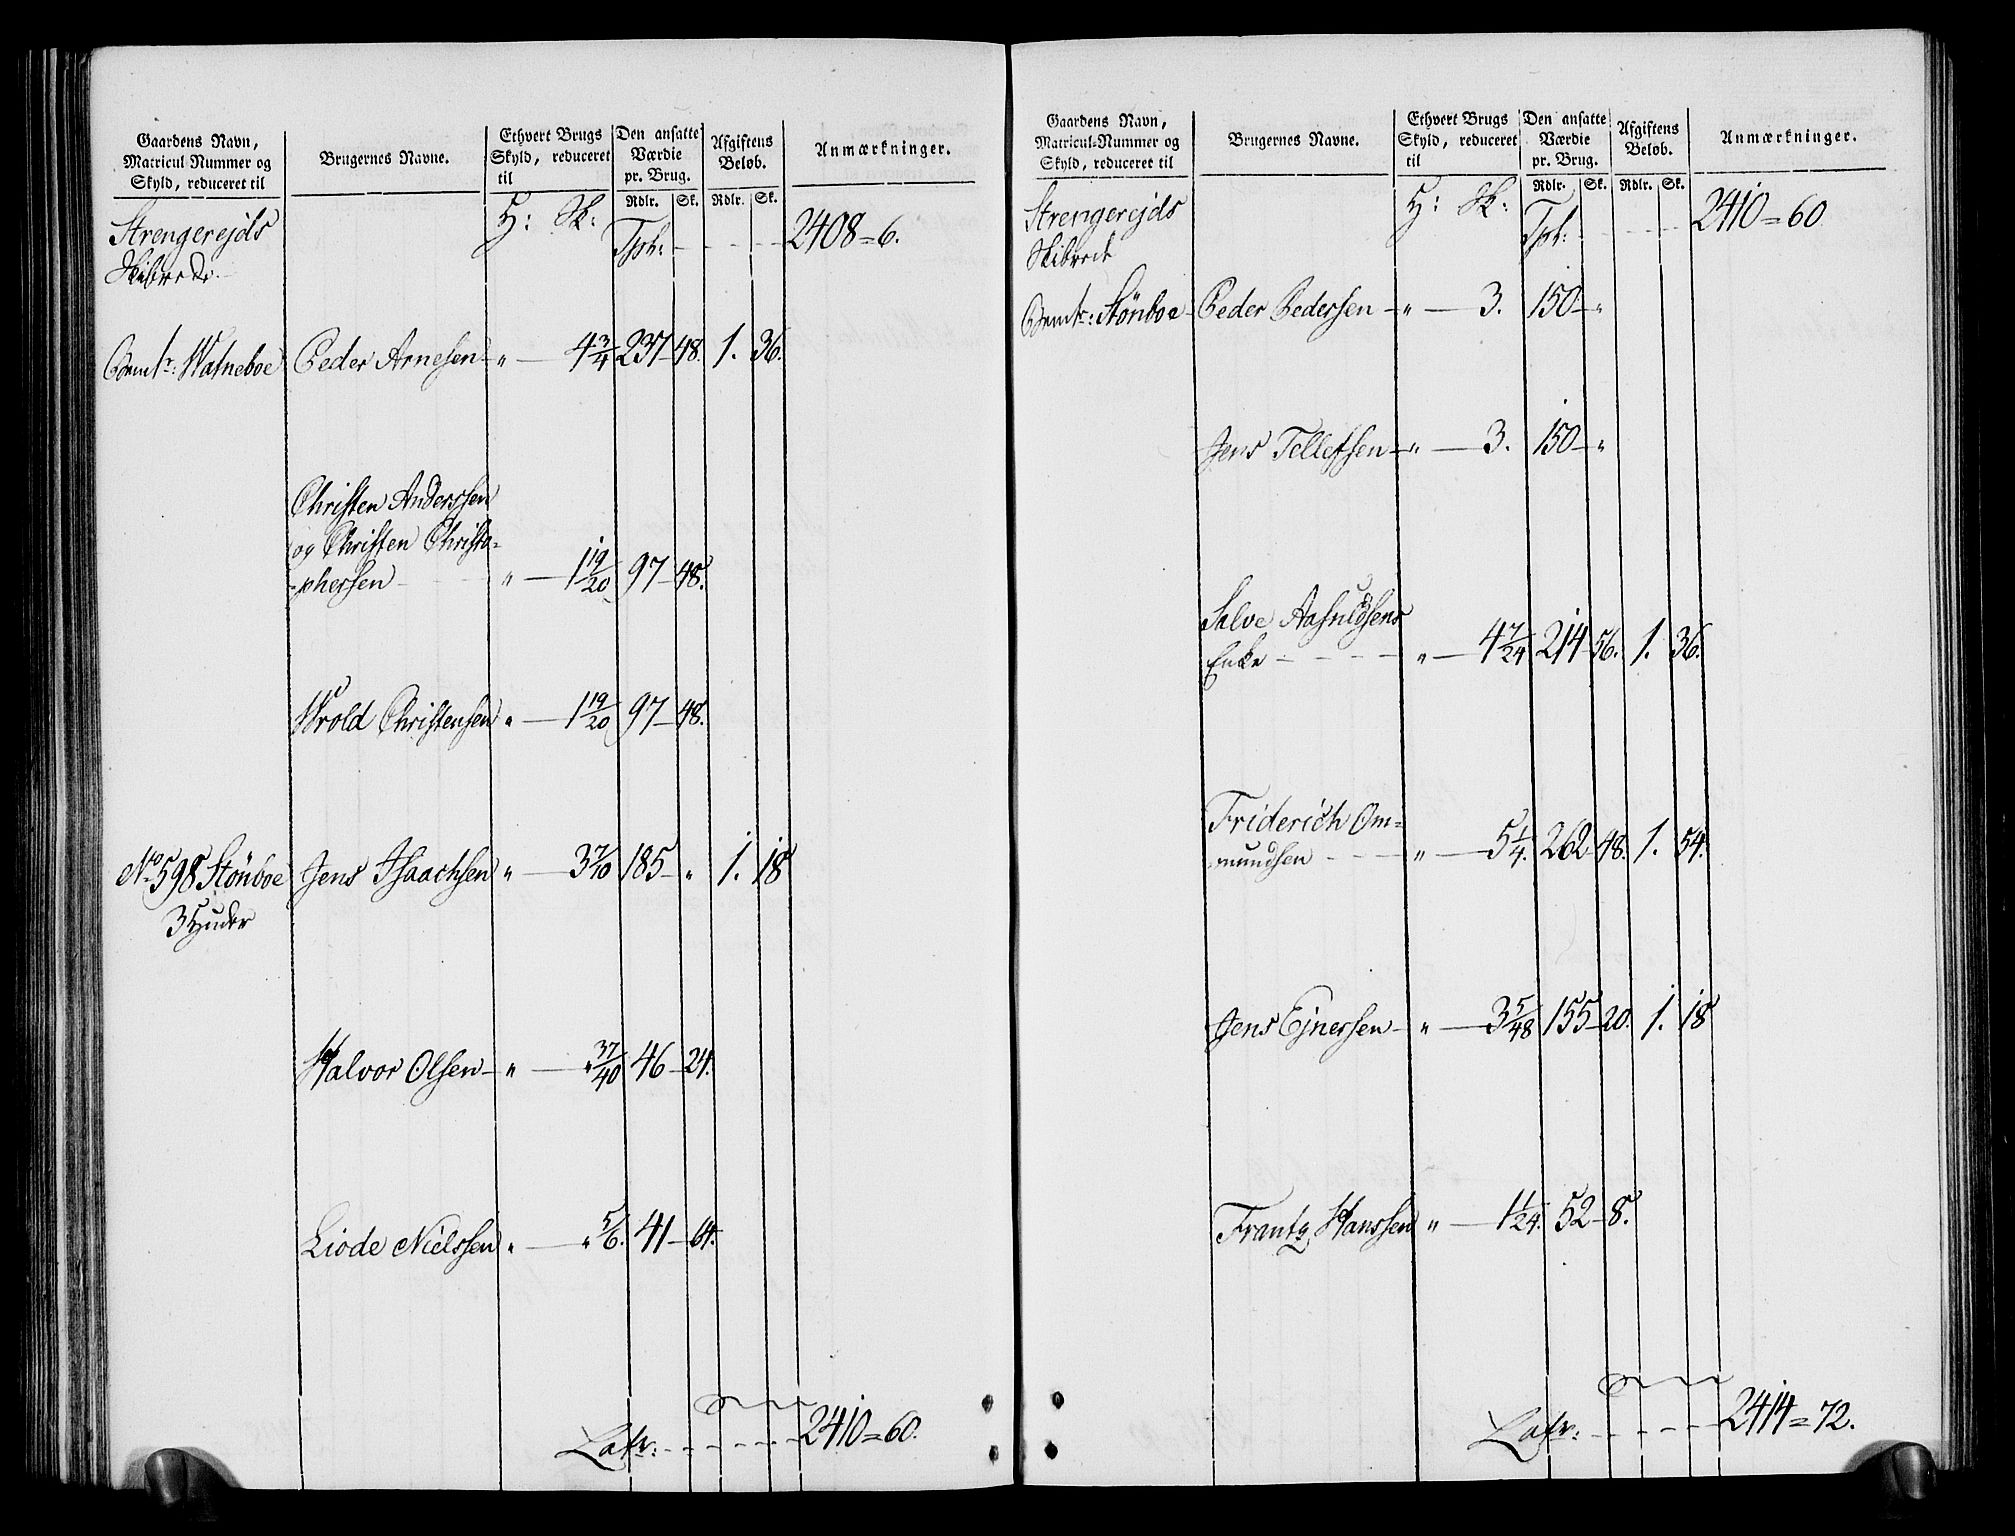 Gaardens Navn,
Matricul-Nummer og
Skyld, reduceret til
Brugernes Navne.
Ethvert Brugs
Skyld, reduceret
til
Den ansatte
Værdie
pr. Brug.
Afgiftens
Beløb.
Anmærkninger.
Rdlr. Sk. Rdlr. Sk.
Strengerejds H: Sk:
Skibrede Tpt: - - - - 2408 = 6.
Watneboe Peder Arnesen - " — 4 3/4 237 - 48. 1. 36.
Christen Anderssen
og Christen Christo-
-phersen - " — 1 19/20 97 - 48.
Wrold Christensen " — 1 19/20 97 - 48.
No 598 Stönboe Jens Isaachsen " — 3 7/10 185 - " 1. 18
3 Huder
Halvor Olsen - " — " 37/40 46 - 24.
Liode Nielssen " — " 5/6. 41 - 64.
Latr: - - - - - 2410 = 60.
Gaardens Navn,
Matricul-Nummer og
Skyld, reduceret til
Brugernes Navne.
Ethvert Brugs
Skyld, reduceret
til
Den ansatte
Værdie
pr. Brug.
Afgiftens
Beløb.
Anmærkninger.
Rdlr. Sk. Rdlr. Sk.
Strengerejds H: Sk:
Skibrede Tpt: - - - - 2410 = 60
Stönboe - Peder Pedersen - " — 3. 150 - "
Jens Tellefsen - " — 3. 150 - "
Salve Aasuldsens
Enke - - - - " — 4 7/24 214 - 56. 1. 36.
Friderich Om=
mundsen - - - " — 5 1/4. 262 - 48. 1. 54.
Jens Ejnersen - " — 3 5/48 155 - 20. 1. 18
Frantz Hanssen " — 1 1/24. 52 - 8.
Latr: - - - - - 2414 = 72.